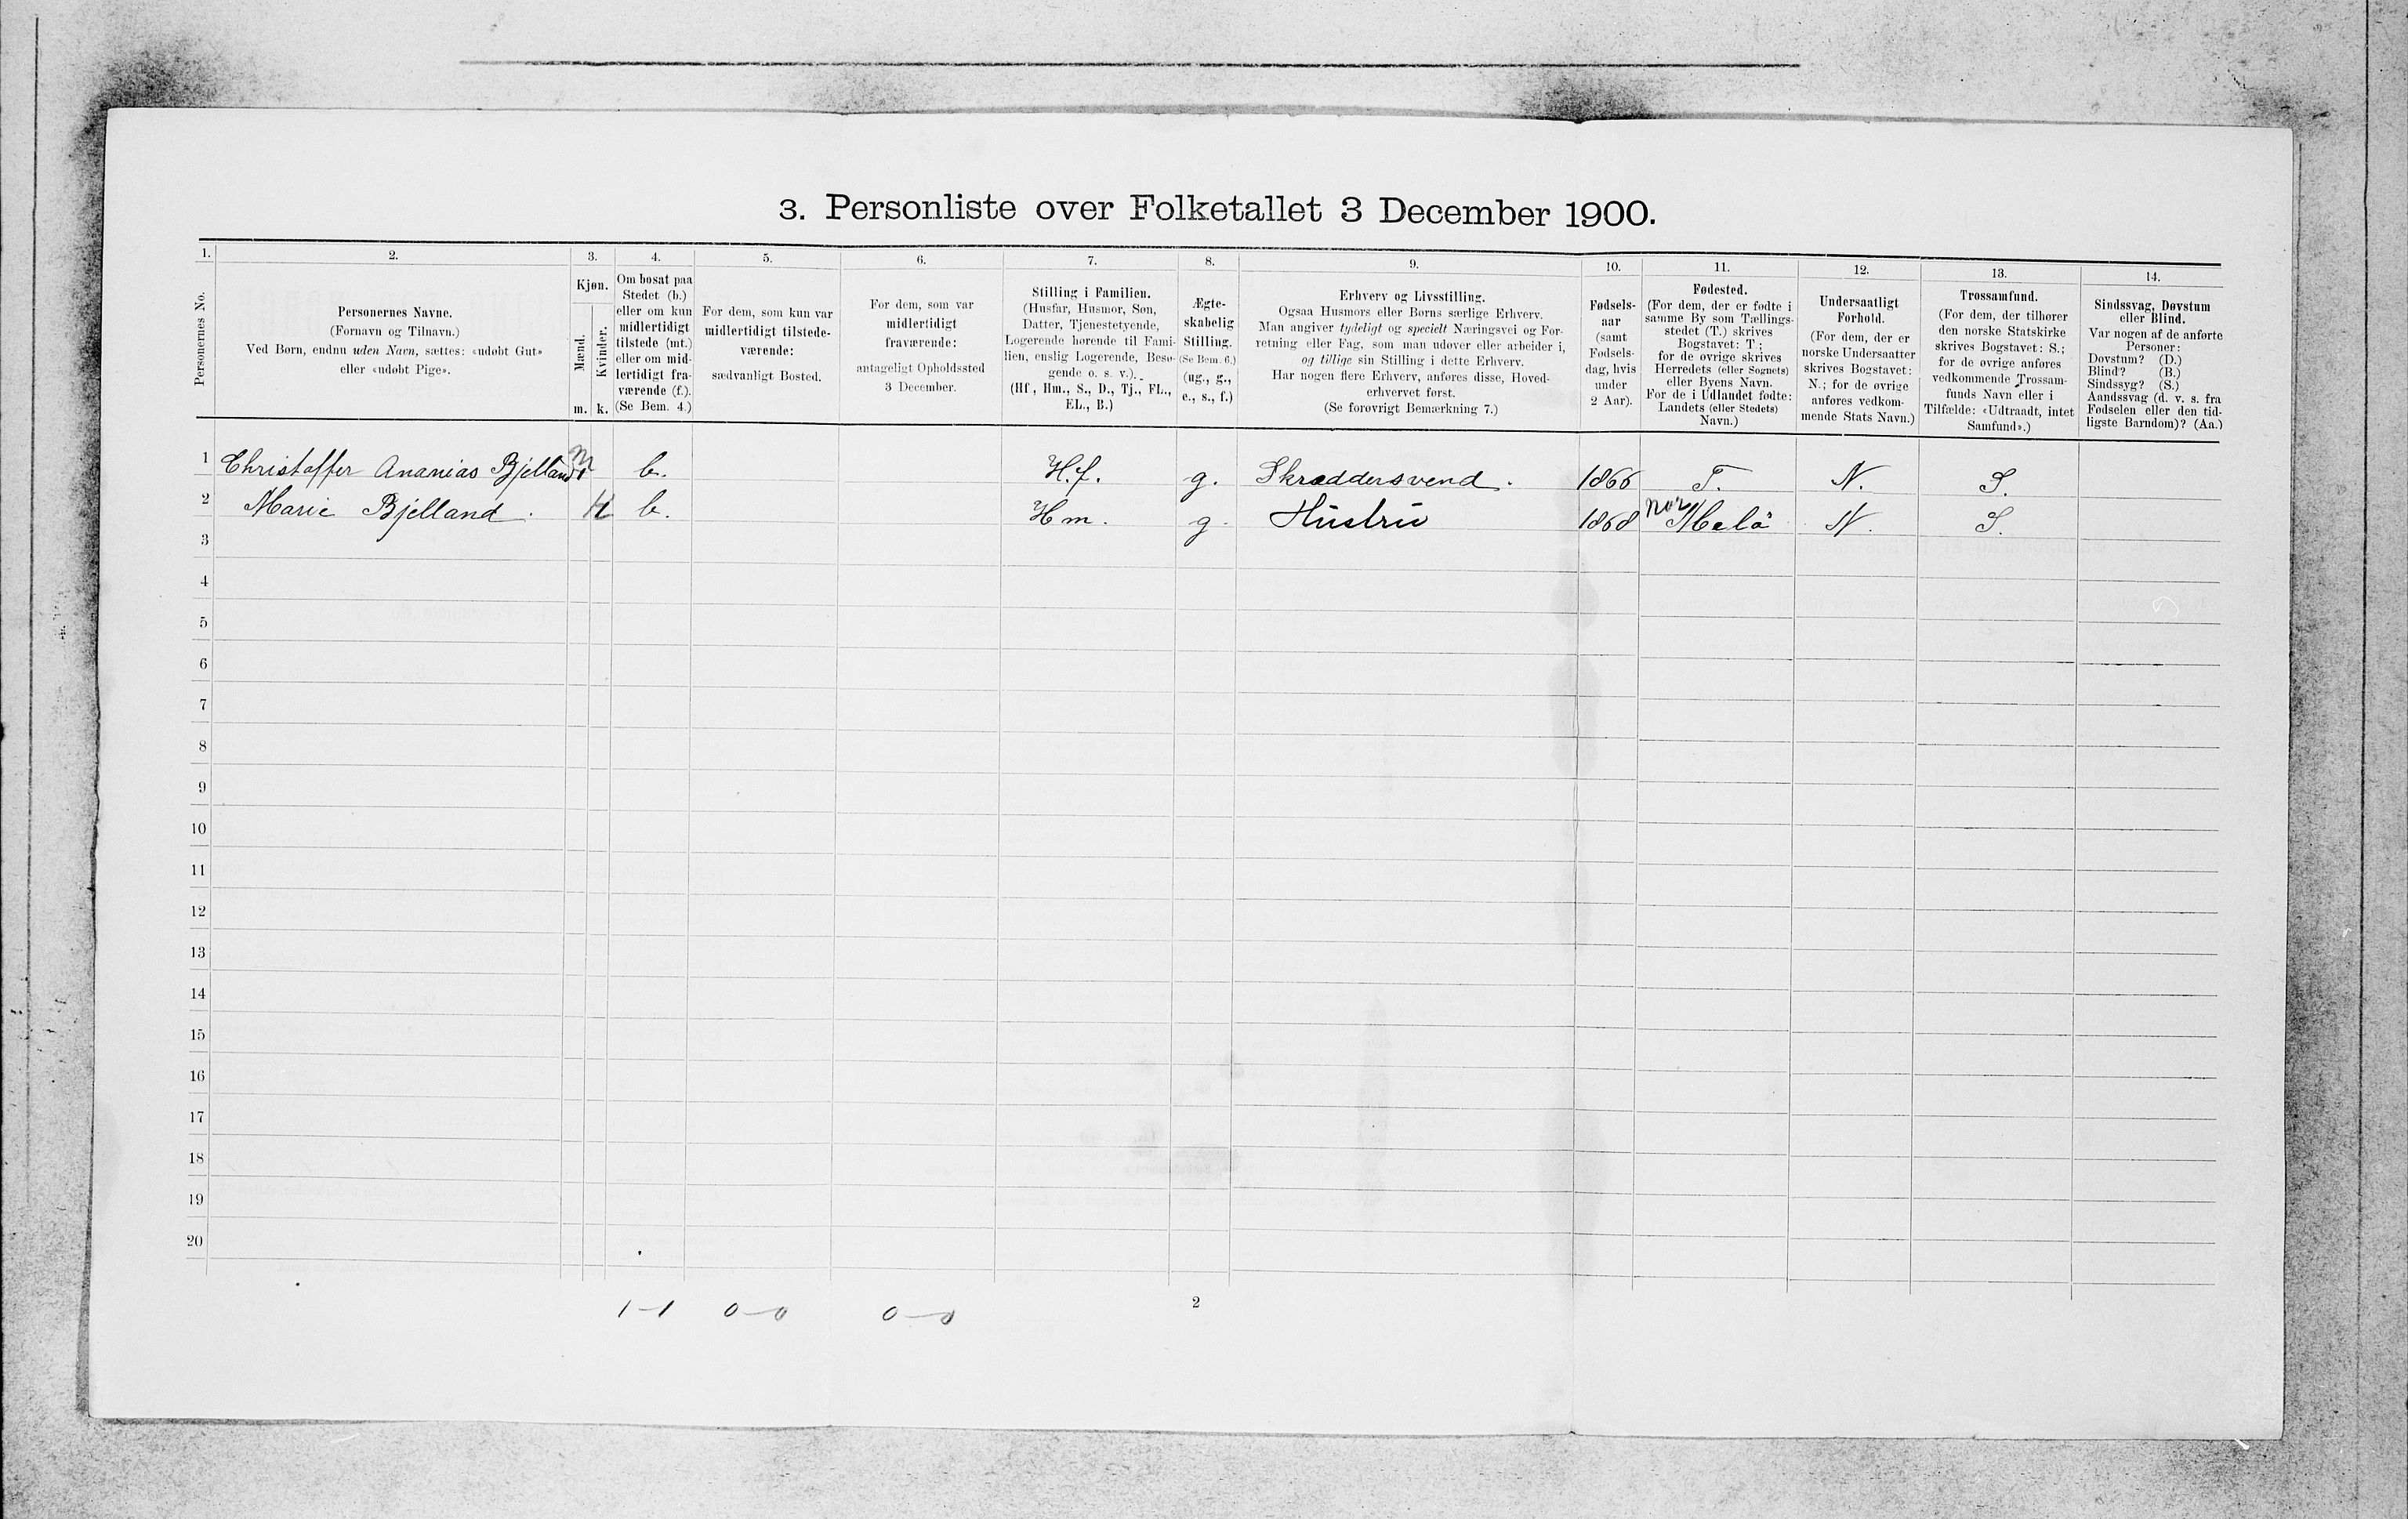 3. Personliste over Folketallet 3 December 1900.
1. 2. 3. 4. 5. 6. 7. 8. 9. 10. 11. 12. 13. 14.
Personernes No.
Personernes Navne.
(Fornavn og Tilnavn.)
Ved Børn, endnu uden Navn, sættes: «udøbt Gut»
eller «udøbt Pige».
Kjøn.
Mænd.
Kvinder.
m. k.
Om bosat paa
Stedet (b.)
eller om kun
midlertidigt
tilstede (mt.)
eller om mid-
lertidigt fra-
værende (f.).
(Se Bem. 4.)
For dem, som kun var
midlertidigt tilstede-
værende:
sædvanligt Bosted.
For dem, som var
midlertidigt
fraværende:
antageligt Opholdssted
3 December.
Stilling i Familien.
(Husfar, Husmor, Søn,
Datter, Tjenestetyende,
Logerende hørende til Fami-
lien, enslig Logerende, Besø-
gende o. s. v.).
(Hf, Hm., S., D., Tj., FL.,
EL., B.)
Ægte-
skabelig
Stilling.
(Se Bem. 6.)
(ug., g.,
e., s., f.)
Erhverv og Livsstilling.
Ogsaa Husmors eller Børns særlige Erhverv.
Man angiver tydeligt og specielt Næringsvei og For-
retning eller Fag, som man udøver eller arbeider i,
og tillige sin Stilling i dette Erhverv.
Har nogen flere Erhverv, anføres disse, Hoved-
erhvervet først.
(Se forøvrigt Bemærkning 7.)
Fødsels-
aar
(samt
Fødsels-
dag, hvis
under
2 Aar).
Fødested.
(For dem, der er fødte i
samme By som Tællings-
stedet (T.) skrives
Bogstavet: T;
for de øvrige skrives
Herredets (eller Sognets)
eller Byens Navn.
For de i Udlandet fødte:
Landets (eller Stedets)
Navn.)
Undersaatligt
Forhold.
(For dem, der er
norske Undersaatter
skrives Bogstavet:
N.; for de øvrige
anføres vedkom-
mende Stats Navn.)
Trossamfund.
(For dem, der tilhører
den norske Statskirke
skrives Bogstavet: S.;
for de øvrige anføres
vedkommende Trossam-
funds Navn eller i
Tilfælde: «Udtraadt, intet
Samfund».)
Sindssvag, Døvstum
eller Blind.
Var nogen af de anførte
Personer:
Døvstum? (D.)
Blind? (B.)
Sindssyg? (S.)
Aandssvag (d. v. s. fra
Fødselen eller den tid-
ligste Barndom)? (Aa.)
1 Christoffer Ananias Bjelland m b. H.f. g. Skræddersvend. 1866 T. N. S.
2 Marie Bjelland. K b. Hm. g. Hustru 1868 N. S.
3
4
5
6
7
8
9
10
11
12
13
14
15
16
17
18
19
20
1-1 0-0 0-0
2